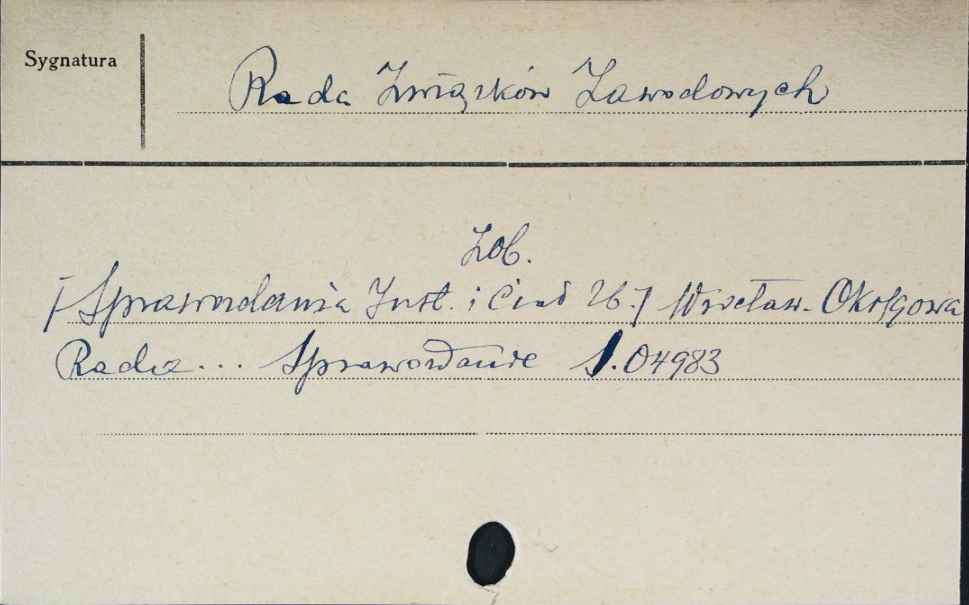 Sygnatura
Rada Związków Zawodowych
Zob.
[Sprawozdania Inst. i Ciał Zb.] Wrocław. Okręgowa
Rada... Sprawozdanie S.04983